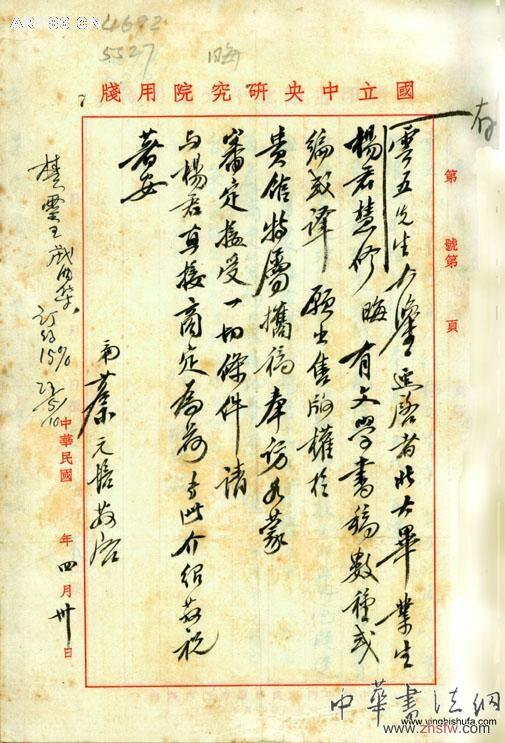 4692
5527
晦
國立中央研究院用牋
存
第 號第 頁
雲五先生大鑒逕啓者北大畢業生
楊君慧修晦有文學書稿數種或
編或譯願出售版權於
貴館特屬攜稿奉訪如蒙
審定接受一切條件請
与楊君直接商定為荷專此介紹并祝
著安
弟蔡元培敬啓
中華民國 年四月卅日
訂約15%
中華書法網
www.yingbishufa.com
www.zhsfw.com